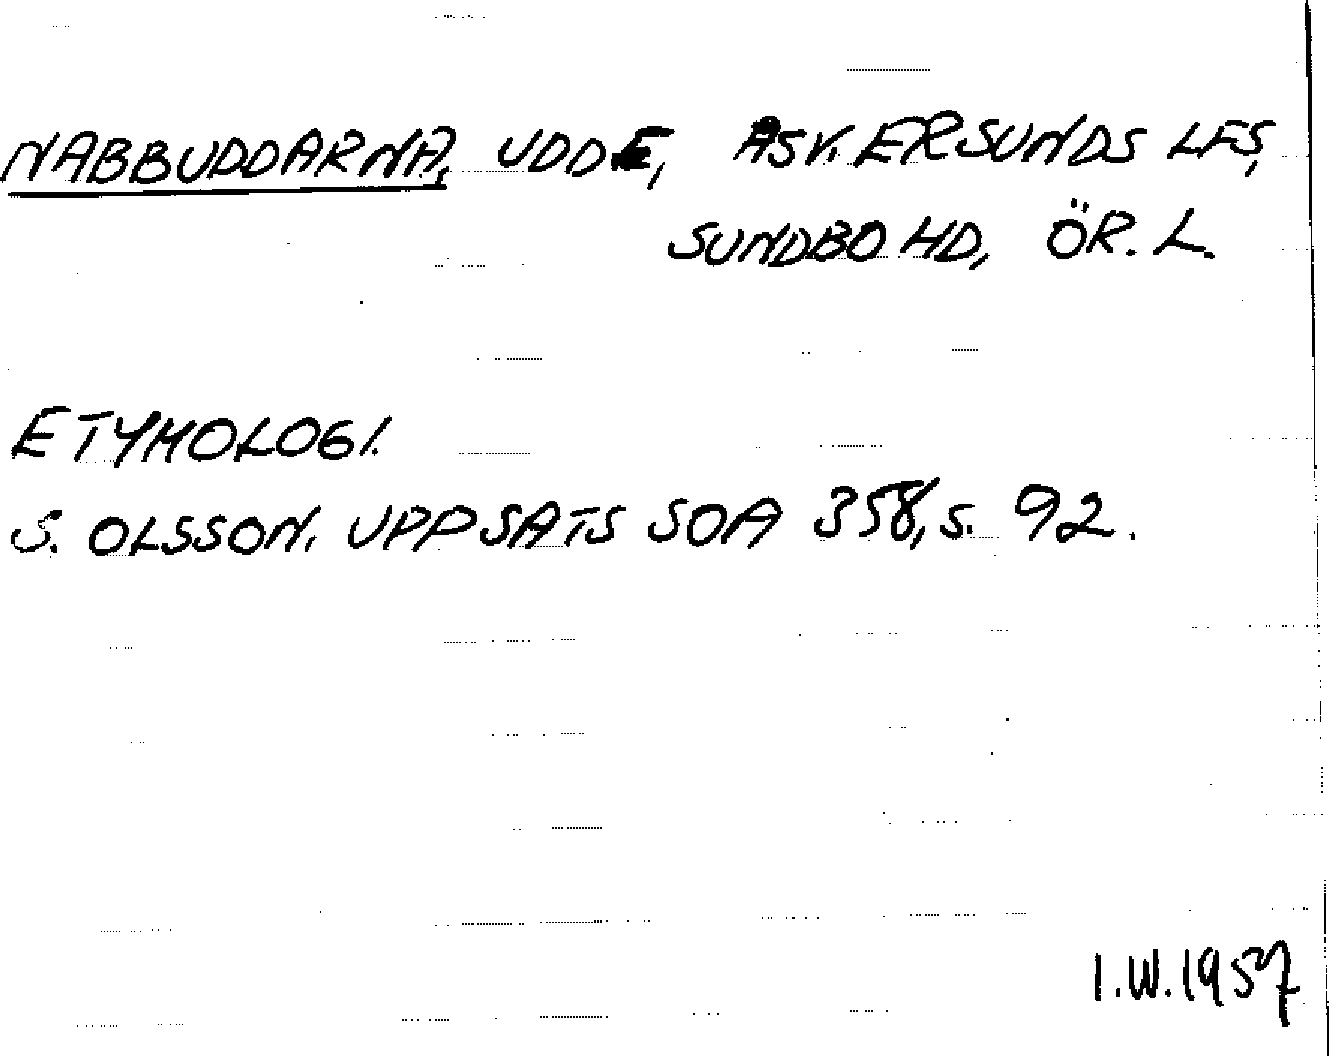 NABBUDDARNA, UDDE, ASKERSUNDS LFS,
SUNDBO HD, ÖR. L.
ETYMOLOGI.
S. OLSSON. UPPSATS SOA 358, s. 92.
I.W.1957